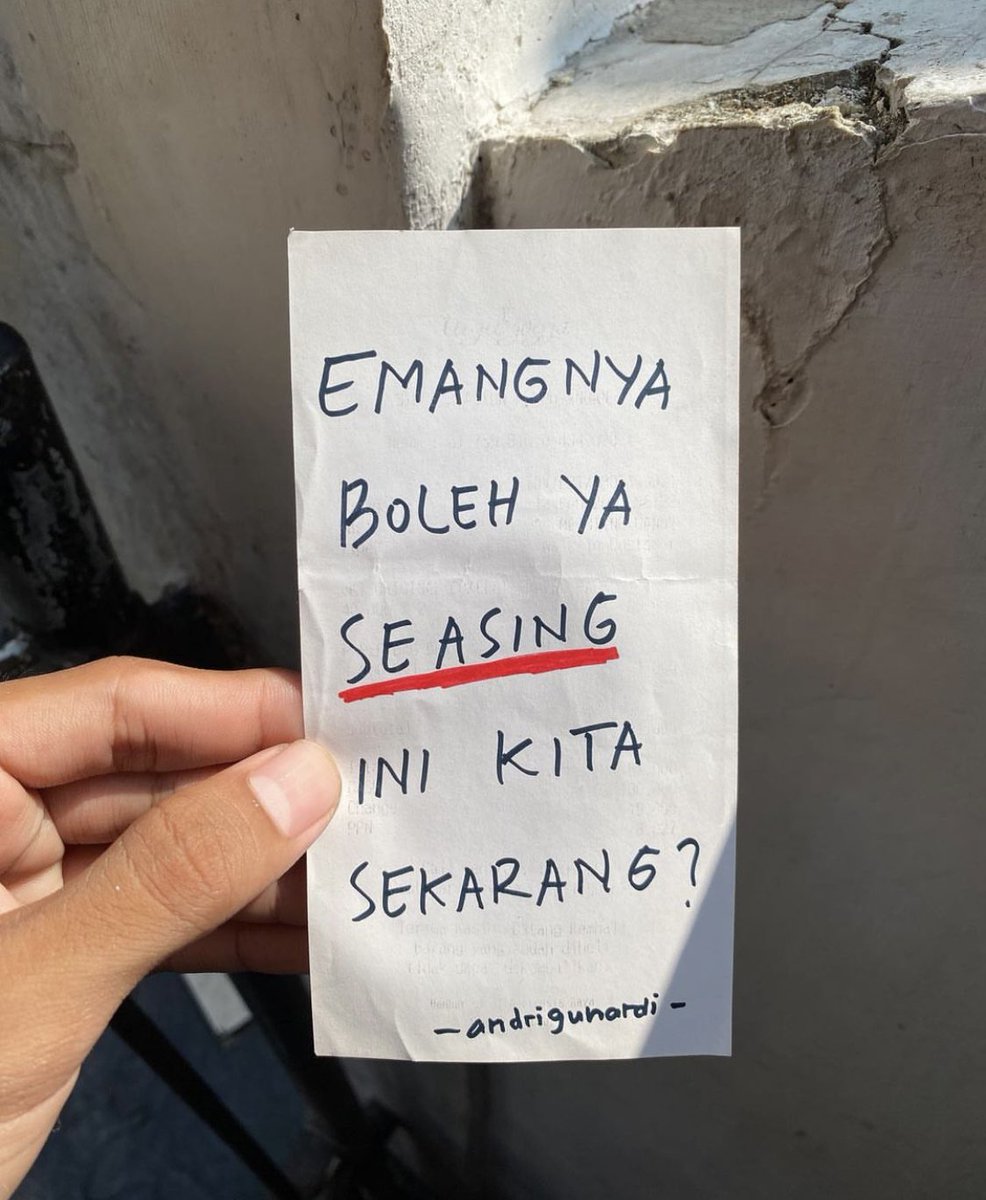 EMANGNYA
BOLEH YA
SEASING
INI KITA
SEKARANG?
-andrigunardi-